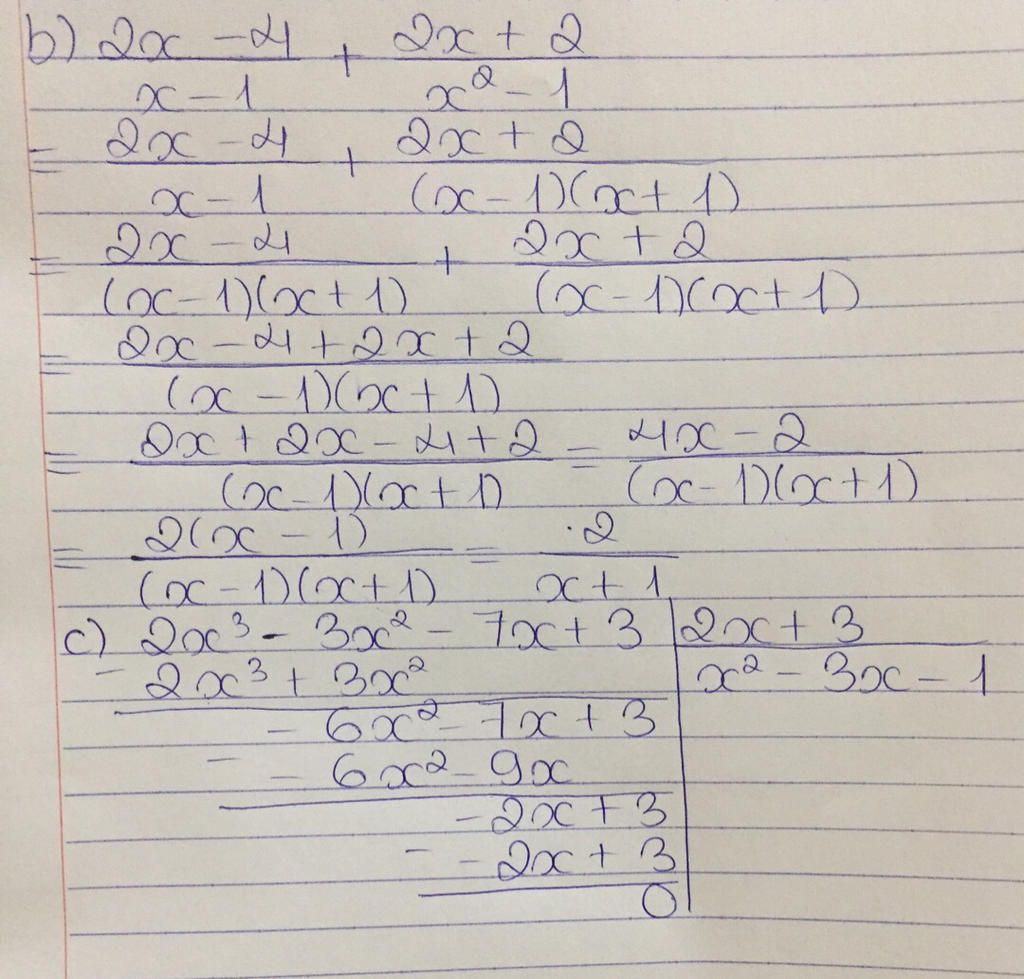 b) 2x - 4 / x - 1 + 2x + 2 / x² - 1
= 2x - 4 / x - 1 + 2x + 2 / (x - 1)(x + 1)
= 2x - 4 / (x - 1)(x + 1) + 2x + 2 / (x - 1)(x + 1)
= 2x - 4 + 2x + 2 / (x - 1)(x + 1)
= 2x + 2x - 4 + 2 / (x - 1)(x + 1) = 4x - 2 / (x - 1)(x + 1)
= 2(x - 1) / (x - 1)(x + 1) = 2 / x + 1
c) 2x³ - 3x² - 7x + 3 | 2x + 3
- 2x³ + 3x² | x² - 3x - 1
- 6x² - 7x + 3
- - 6x² - 9x
- 2x + 3
- - 2x + 3
0